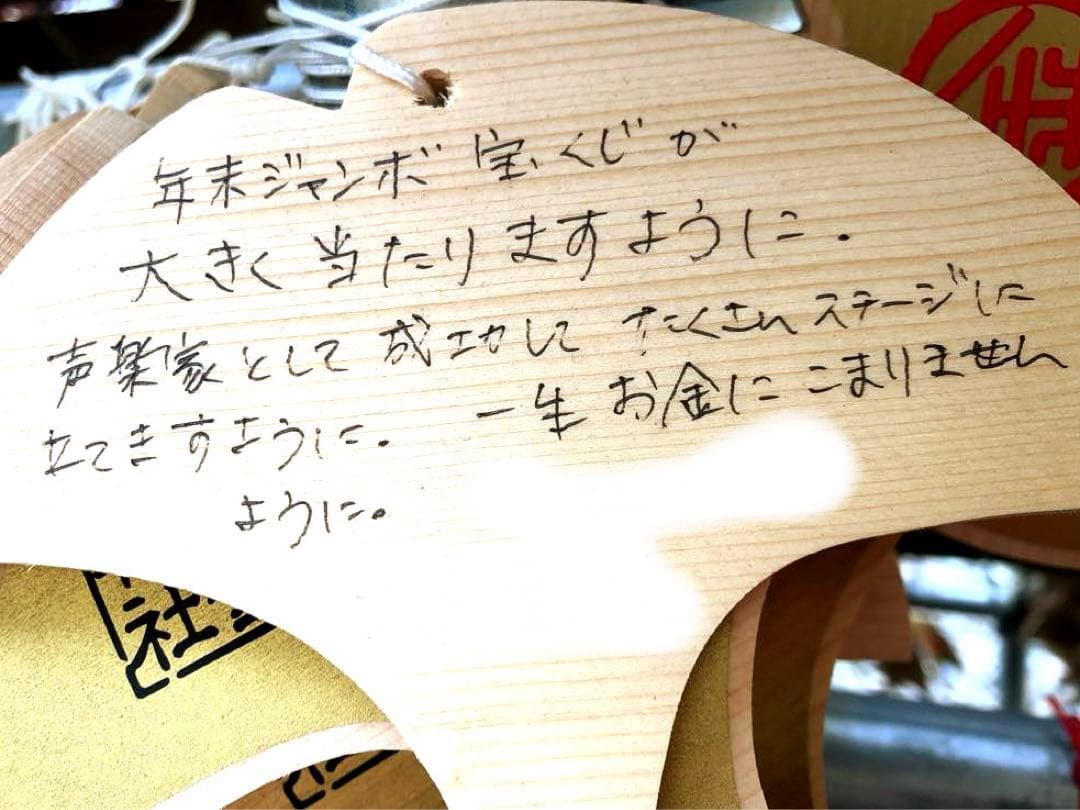 年末ジャンボ宝くじが
大きく当たりますように.
声楽家として成功して たくさんステージに
立てきすように. 一生お金にこまりません
ように。
社